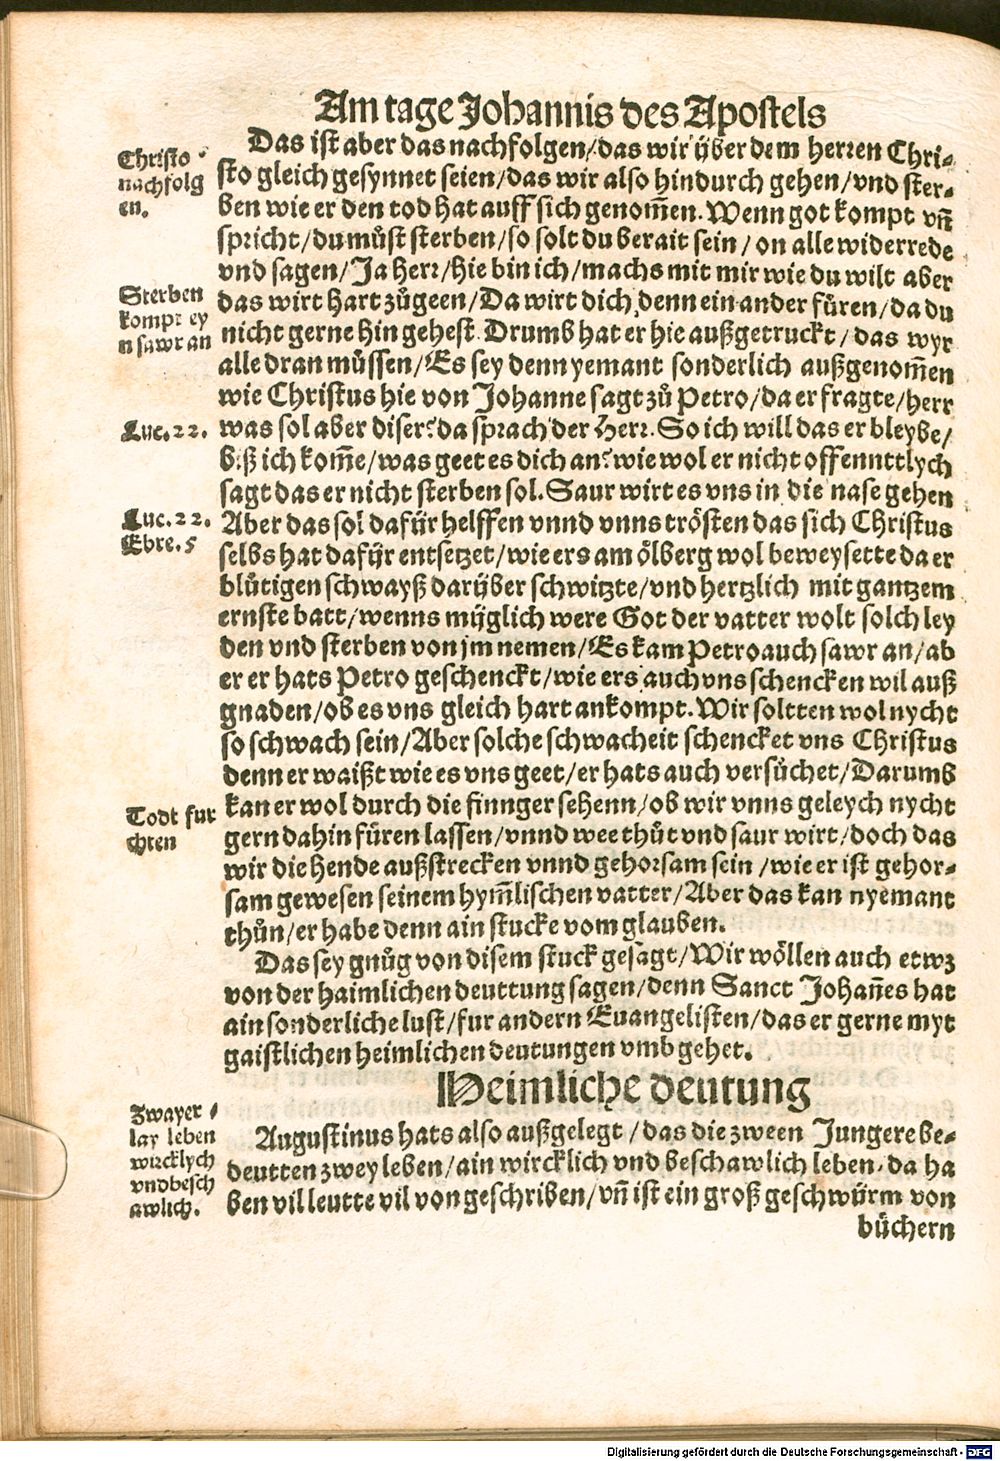 Am tage Johannis des Apostels
Das ist aber das nachfolgen/das wir über dem herren Chri-
sto gleich gesynnet seien/das wir also hindurch gehen/vnd ster-
ben wie er den tod hat auff sich genom̃en. Wenn got kompt vñ
spricht/du můst sterben/so solt du berait sein/on alle widerrede
vnd sagen/Ja herr/hie bin ich/machs mit mir wie du wilt aber
das wirt hart zůgeen/Da wirt dich denn ein ander füren/da du
nicht gerne hin gehest. Drumb hat er hie außgetruckt/das wyr
alle dran müssen/Es sey denn yemant sonderlich außgenom̃en
wie Christus hie von Johanne sagt zů Petro/da er fragte/herr
was sol aber diser? da sprach der Herr. So ich will das er bleybe/
biß ich kom̃e/was geet es dich an? wie wol er nicht offennttlych
sagt das er nicht sterben sol. Saur wirt es vns in die nase gehen
Aber das sol dafür helffen vnnd vnns trösten das sich Christus
selbs hat dafür entsetzet/wie ers am ölberg wol beweysette da er
blůtigen schwayß darüber schwitzte/vnd hertzlich mit gantzem
ernste batt/wenns müglich were Got der vatter wolt solch ley
den vnd sterben von jm nemen/Es kam Petro auch sawr an/ab
er er hats Petro geschenckt/wie ers auch vns schencken wil auß
gnaden/ob es vns gleich hart ankompt. Wir soltten wol nycht
so schwach sein/Aber solche schwacheit schencket vns Christus
denn er waißt wie es vns geet/er hats auch versůchet/Darumb
kan er wol durch die finnger sehenn/ob wir vnns geleych nycht
gern dahin füren lassen/vnnd wee thůt vnd saur wirt/doch das
wir die hende außstrecken vnnd gehorsam sein/wie er ist gehor-
sam gewesen seinem hym̃lischen vatter/Aber das kan nyemant
thůn/er habe denn ain stucke vom glauben.
Das sey gnůg von disem stuck gesagt/Wir wöllen auch etwz
von der haimlichen deuttung sagen/denn Sanct Johañes hat
ain sonderliche lust/fur andern Euangelisten/das er gerne myt
gaistlichen heimlichen deutungen vmb gehet.
Heimliche deutung
Augustinus hats also außgelegt/das die zween Jungere be-
deutten zwey leben/ain wircklich vnd beschawlich leben, da ha
ben vil leutte vil von geschriben/vñ ist ein groß geschwürm von
büchern
Christo
nachfolg
en.
Sterben
kompt ey
n sawr an
Luc. 22.
Luc. 22.
Ebre. 5
Todt fur
chten
Zwayer-
lay leben
wircklych
vnd besch
awlich.
Digitalisierung gefördert durch die Deutsche Forschungsgemeinschaft - DFG